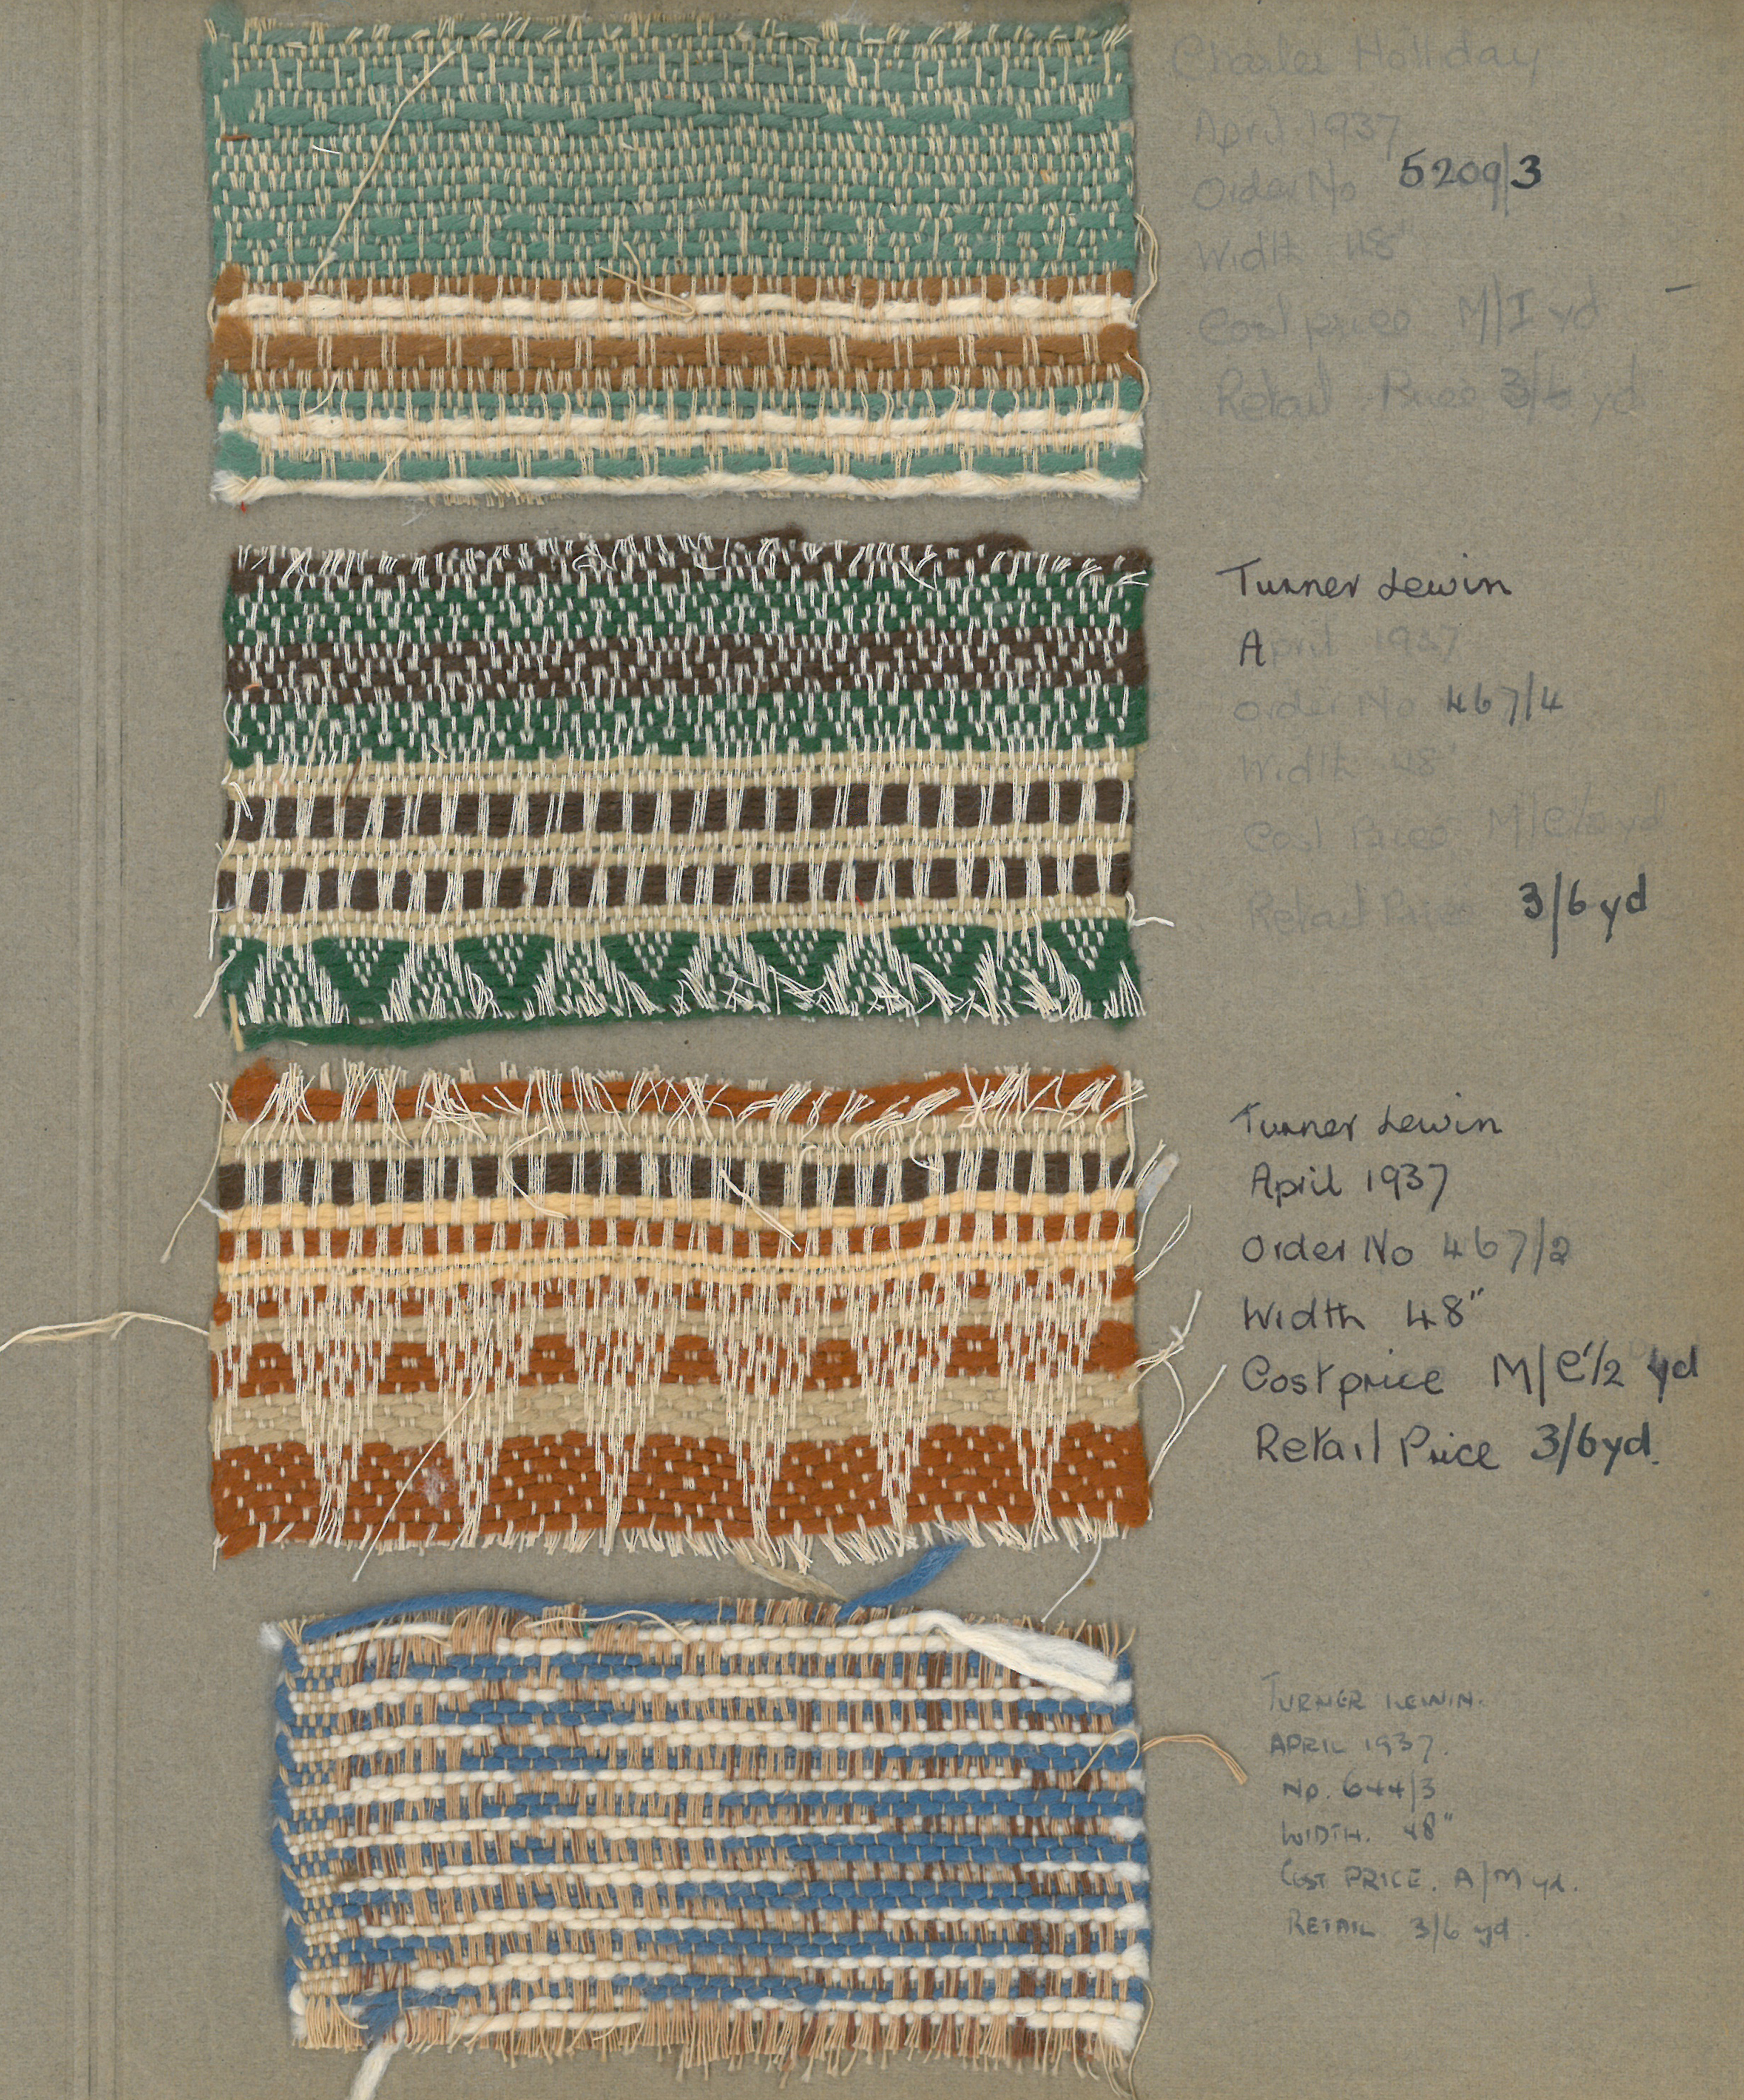 Charles Holliday
April 1937
Order No 5209/3
Width 48"
Cost price M/I yd
Retail Price 3/6 yd
Turner Lewin
April 1937
Order No 467/4
Width 48"
Cost Price M/C½ yd
Retail Price 3/6 yd
Turner Lewin
April 1937
Order No 467/2
Width 48"
Cost price M/C½ yd
Retail Price 3/6 yd.
TURNER LEWIN.
APRIL 1937.
No. 644/3
WIDTH. 48"
COST PRICE. A/M yd.
RETAIL 3/6 yd.